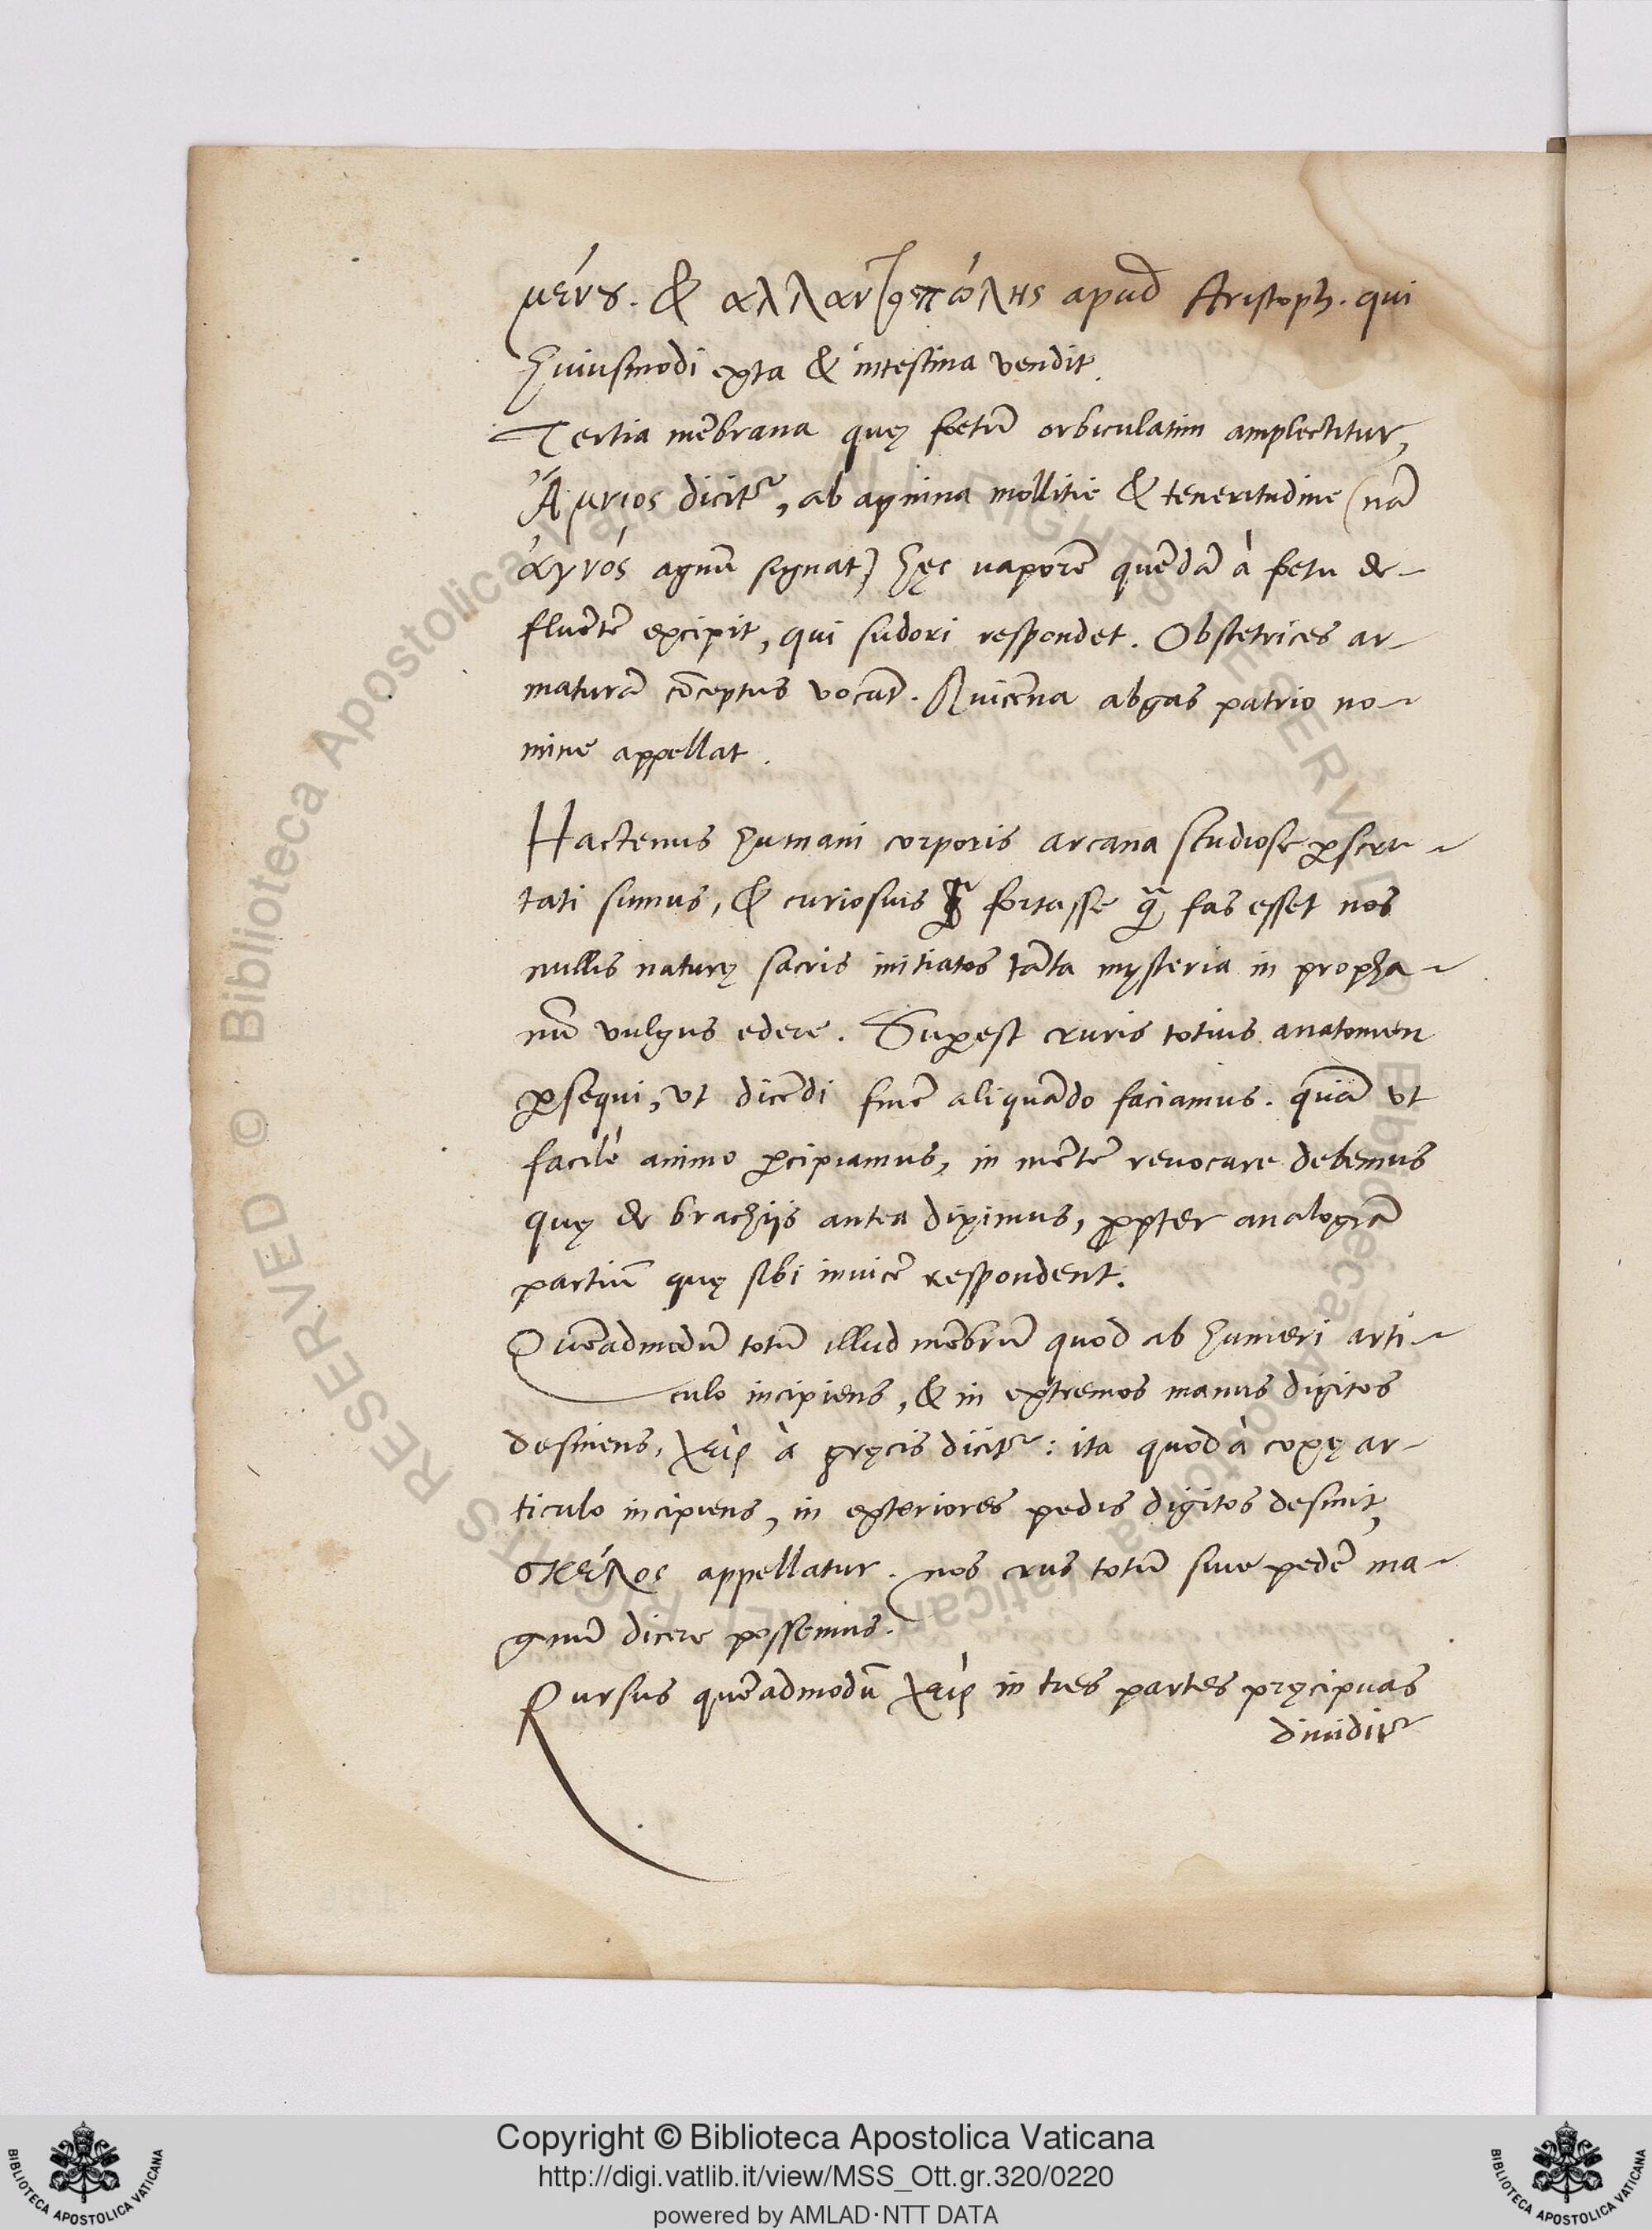 μένȣ. & αλλαντοπώλης apud Aristoph. qui
huiusmodi exta & intestina vendit.
Tertia mẽbrana quę foetũ orbiculatim amplectitur,
Ἄμνιος dicit᷑, ab agnina mollitie & teneritudine (nã
ἀγνός agnũ signat) hęc uaporẽ quẽdã à foetu de-
fluẽtẽ excipit, qui sudori respondet. Obstetrices ar-
maturã cõceptus vocãt. Auicẽna abgas patrio no-
mine appellat.
Hactenus humani corporis arcana studiose ꝑscru-
tati sumus, & curiosius fortasse q̃ fas esset nos
nullis naturę sacris initiatos tãta mysteria in propha-
nũ vulgus edere. Suꝑest cruris totius anatomen
ꝑsequi, ut dicẽdi finẽ aliquãdo faciamus. quã ut
facilè animo ꝑcipiamus, in mẽtẽ reuocare debemus
quę de brachijs antea diximus, ꝓpter analogiã
partiũ quę sibi inuicẽ respondent.
Quẽadmodũ totũ illud mẽbrũ quod ab humeri arti-
culo incipiens, & in extremos manus digitos
desinens, χεὶρ à gręcis dicit᷑: ita quod à coxę ar-
ticulo incipiens, in exteriores pedis digitos desinit,
σκέλος appellatur. nos crus totũ siue pedẽ ma-
gnũ dicere possemus.
Rursus quẽadmodũ χεὶρ in tres partes pręcipuas
diuidit᷑
© Biblioteca Apostolica Vaticana ALL RIGHTS RESERVED
© Biblioteca Apostolica Vaticana ALL RIGHTS RESERVED
Copyright © Biblioteca Apostolica Vaticana
http://digi.vatlib.it/view/MSS_Ott.gr.320/0220
powered by AMLAD·NTT DATA
BIBLIOTECA APOSTOLICA VATICANA
BIBLIOTECA APOSTOLICA VATICANA